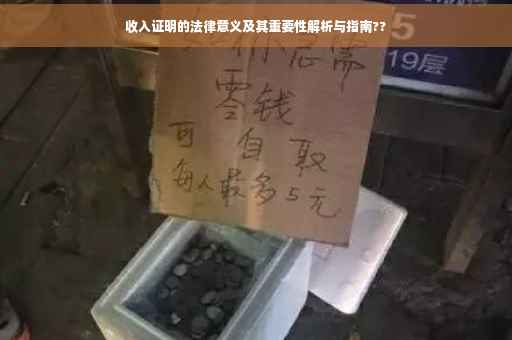 收入证明的法律意义及其重要性解析与指南??
如你急需
零钱
可自取
每人最多5元
5
19层